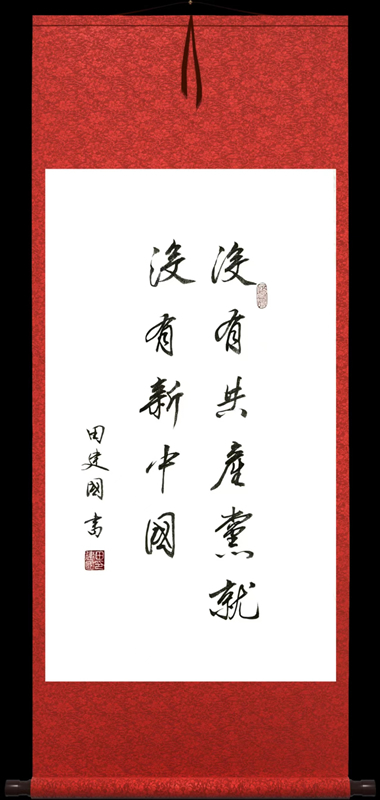 没有共產黨就
没有新中國
田建國書